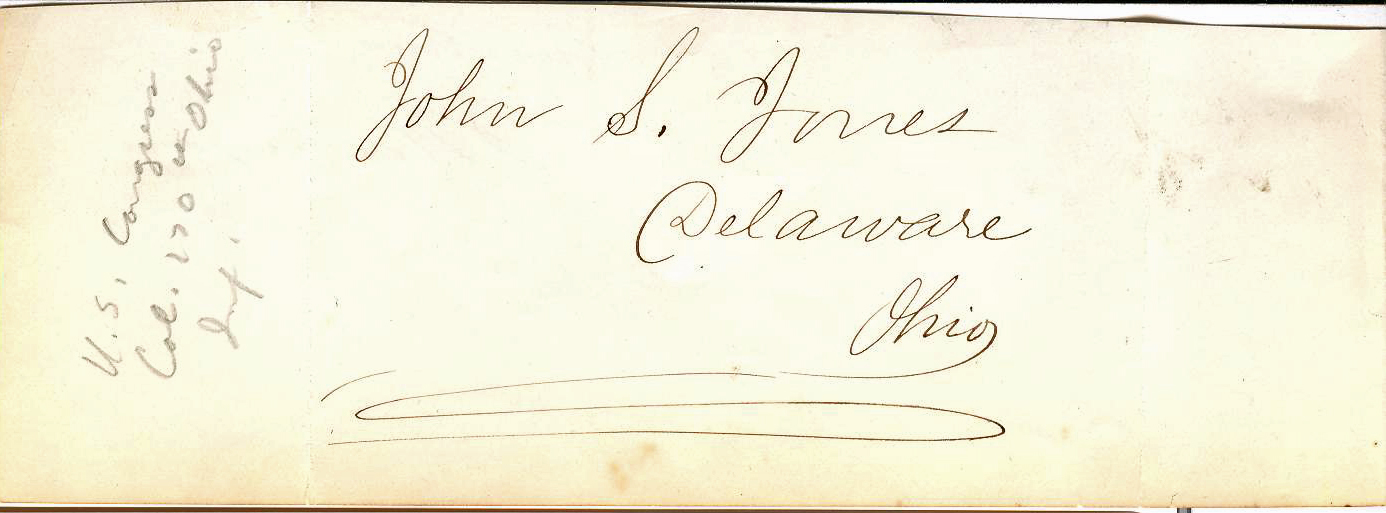 John S. Jones
Delaware
Ohio
U.S. Congress
Col. 170 Ohio
Inf.